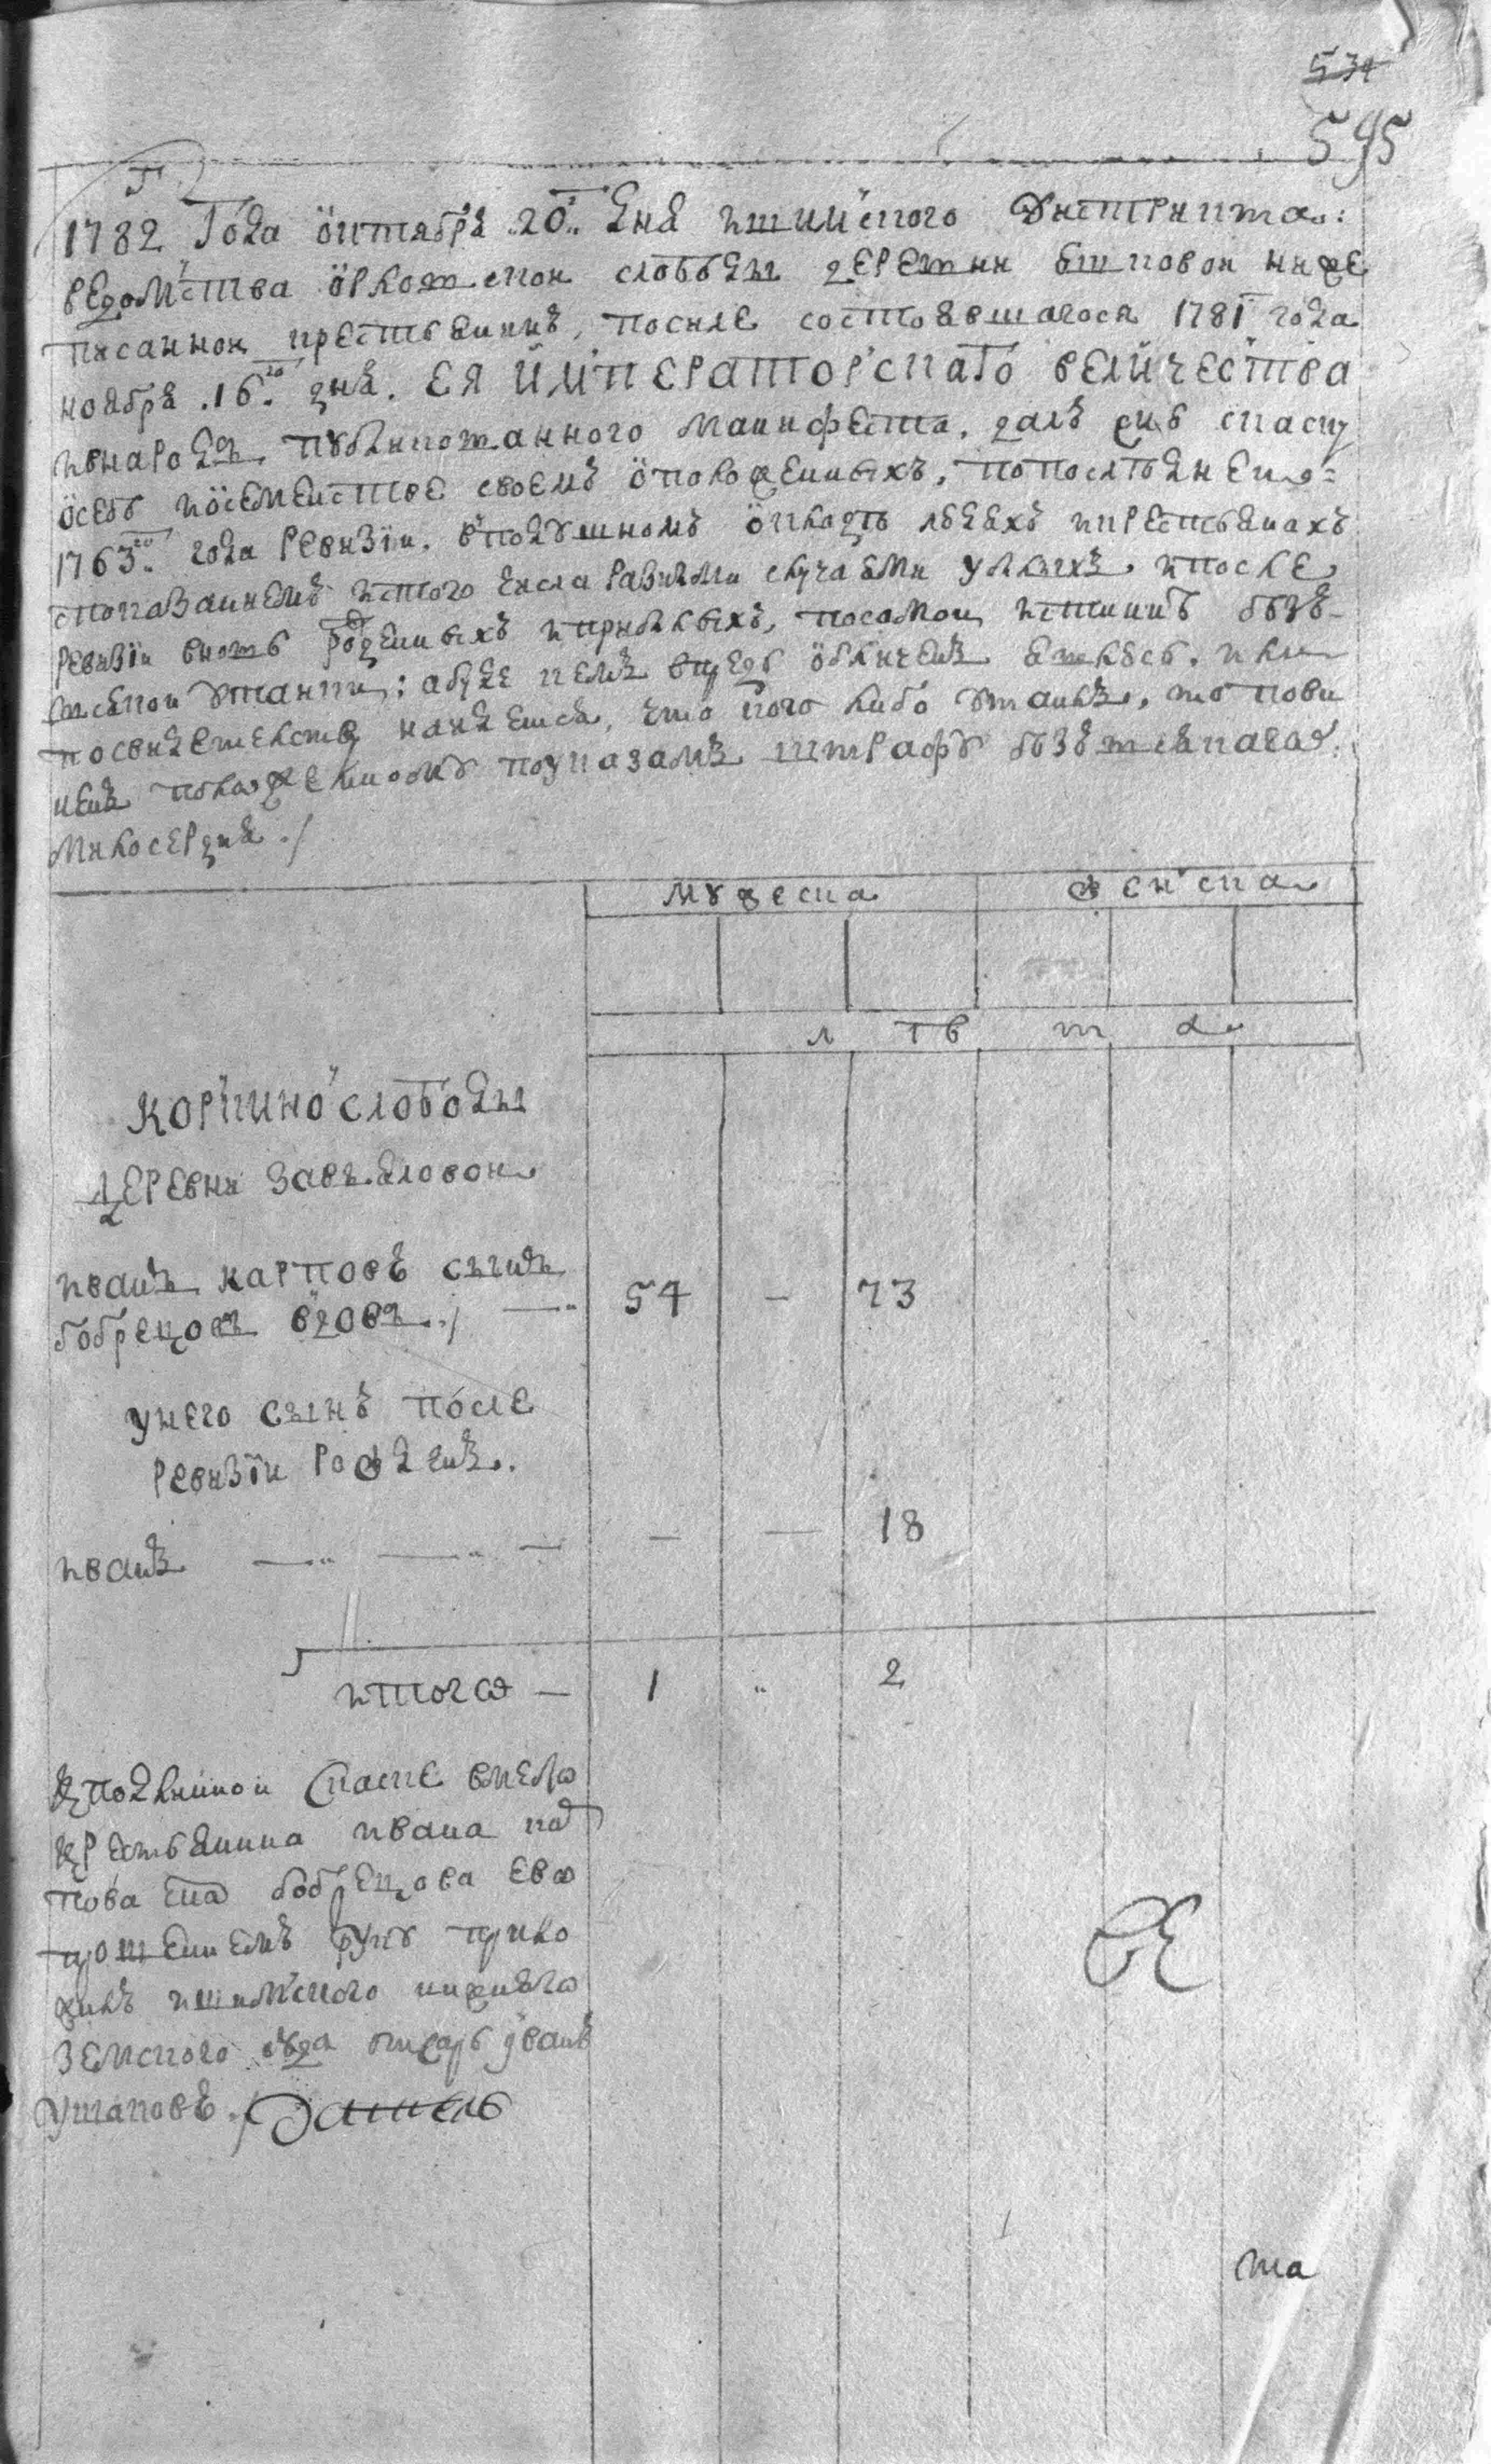 534
595
1782 Года октября 20. дня ишимского дистрикта
ведомства орловской слободы деревни
писанной крестьянинъ, после состоявшагося 1781 года
ноября .16. дня. ЕЯ ИМПЕРАТОРСКАГО величества
внародъ публикованного манифеста, далъ сию скаску
осебе и осемействе своемъ оположенныхъ, попоследней
1763. года ревизiи, вподушномъ окладъ людяхъ крестьянахъ
спопазаниемъ истого числа разными случаями убылыхъ ипосле
ревизiи вновь рожденныхъ иприбылыхъ, посамой истиннъ безъ
всякой утайки; абуде кемъ впредь обличенъ явлюсь, или
посвидетельству найдется, что кого либо утаилъ, то пови
ненъ положенному поуказамъ штрафу безъ всякаго
милосердия ./
мужеска женска
л т в т а
Коркино слободы
деревни завьяловой
иванъ карповъ сынъ 54 - 73
бобрецовъ вдовъ ./
унего сынъ после
ревизiи рожденъ.
иванъ - - 18
итого - 1 " 2
Кподлинной скаске вместо
крестьянина ивана кар
пова сна бобрецова ево
прошениемъ руку прило
жилъ ишимского нижняго
земского суда писарь иванъ
ушаковъ ./
та